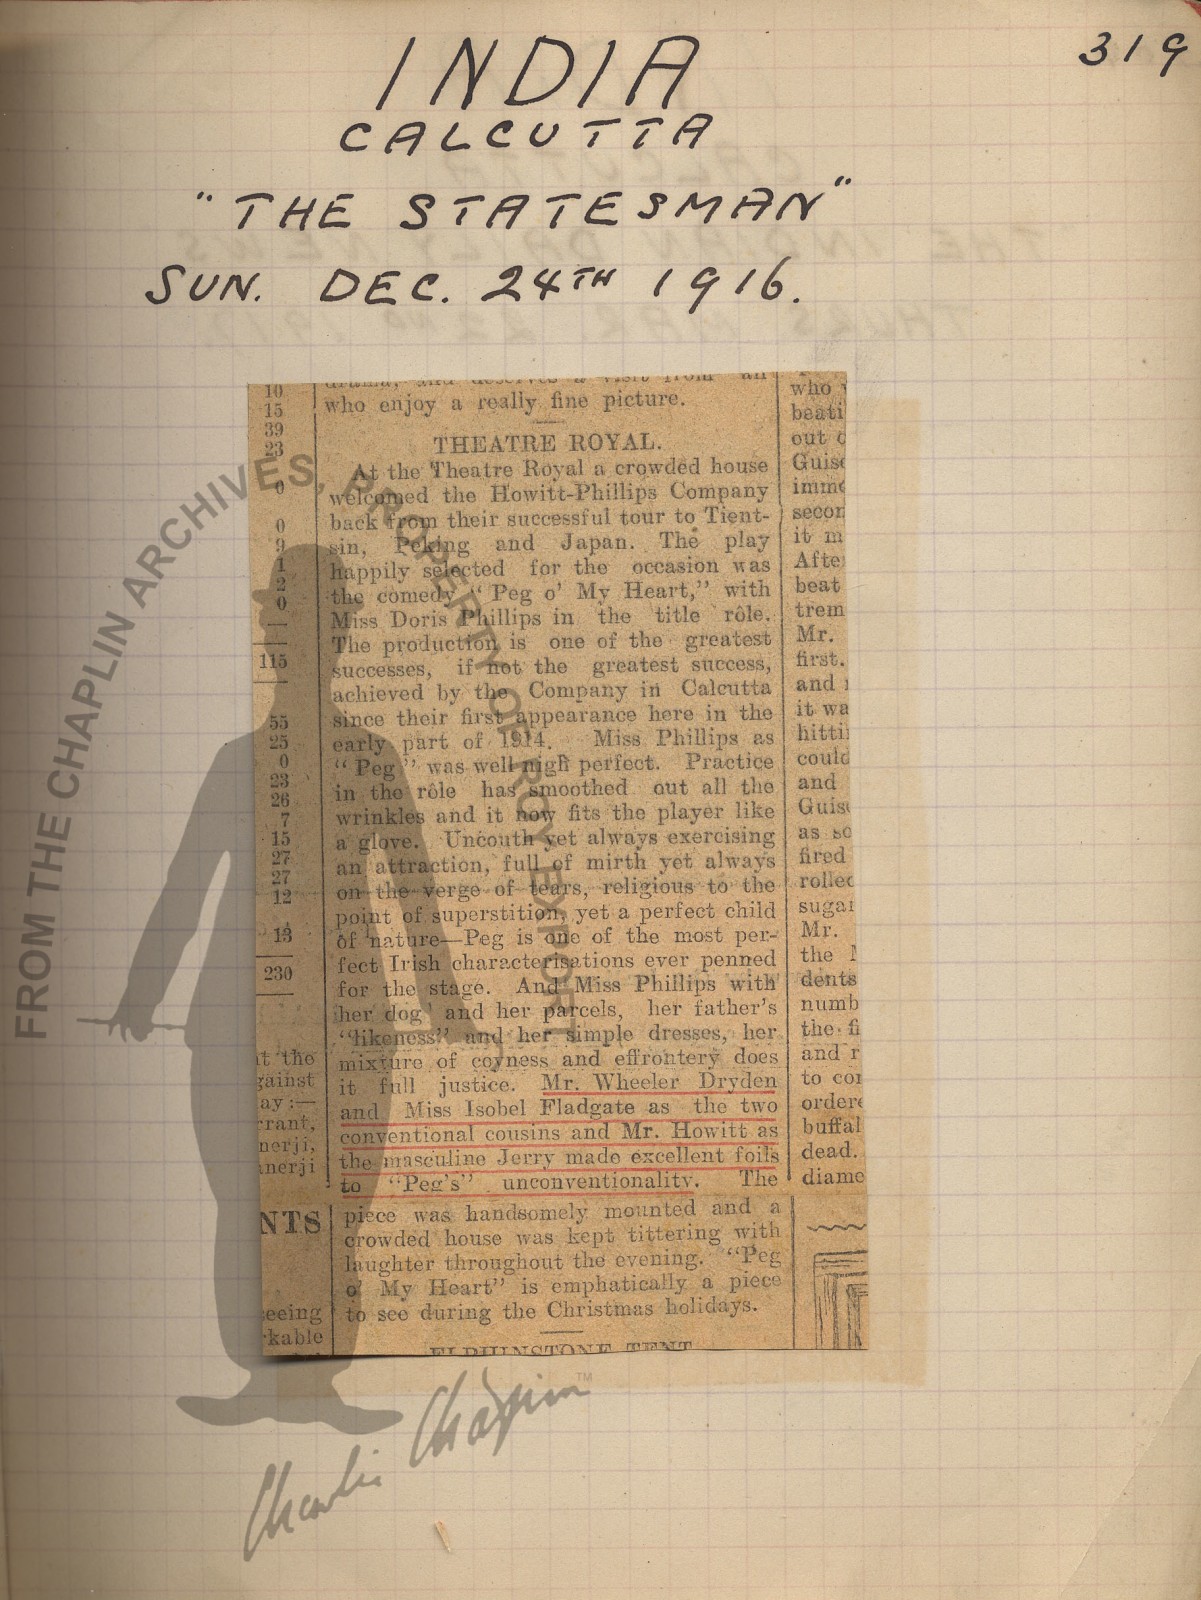 319
INDIA
CALCUTTA
"THE STATESMAN"
SUN. DEC. 24TH 1916.
10
15
39
23
0
0
9
1
2
0
115
55
25
0
23
26
7
15
27
27
12
13
230
at the
gainst
ay:—
rrant,
nerji,
anerji
NTS
eeing
rkable
drama, and deserves a visit from all
who enjoy a really fine picture.
THEATRE ROYAL.
At the Theatre Royal a crowded house
welcomed the Howitt-Phillips Company
back from their successful tour to Tient-
sin, Peking and Japan. The play
happily selected for the occasion was
the comedy "Peg o' My Heart," with
Miss Doris Phillips in the title rôle.
The production is one of the greatest
successes, if not the greatest success,
achieved by the Company in Calcutta
since their first appearance here in the
early part of 1914. Miss Phillips as
"Peg" was well nigh perfect. Practice
in the rôle has smoothed out all the
wrinkles and it now fits the player like
a glove. Uncouth yet always exercising
an attraction, full of mirth yet always
on the verge of tears, religious to the
point of superstition, yet a perfect child
of nature—Peg is one of the most per-
fect Irish characterisations ever penned
for the stage. And Miss Phillips with
her dog and her parcels, her father's
"likeness" and her simple dresses, her
mixture of coyness and effrontery does
it full justice. Mr. Wheeler Dryden
and Miss Isobel Fladgate as the two
conventional cousins and Mr. Howitt as
the masculine Jerry made excellent foils
to "Peg's" unconventionality. The
piece was handsomely mounted and a
crowded house was kept tittering with
laughter throughout the evening. "Peg
o' My Heart" is emphatically a piece
to see during the Christmas holidays.
ELPHINSTONE TENT
who
beati
out o
Guise
imme
secon
it m
After
beat
trem
Mr.
first.
and
it wa
hitti
could
and
Guise
as so
fired
rolled
sugar
Mr.
the
dents
numb
the fi
and r
to con
ordere
buffal
dead.
diame
FROM THE CHAPLIN ARCHIVES, PROPERTY OF ROY EXPORT
Charlie Chaplin™